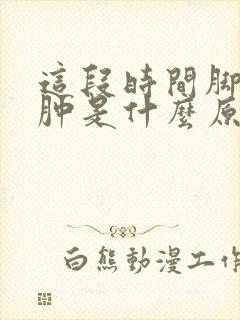 這段時間脚
肿是什麼原
白熊動漫工作